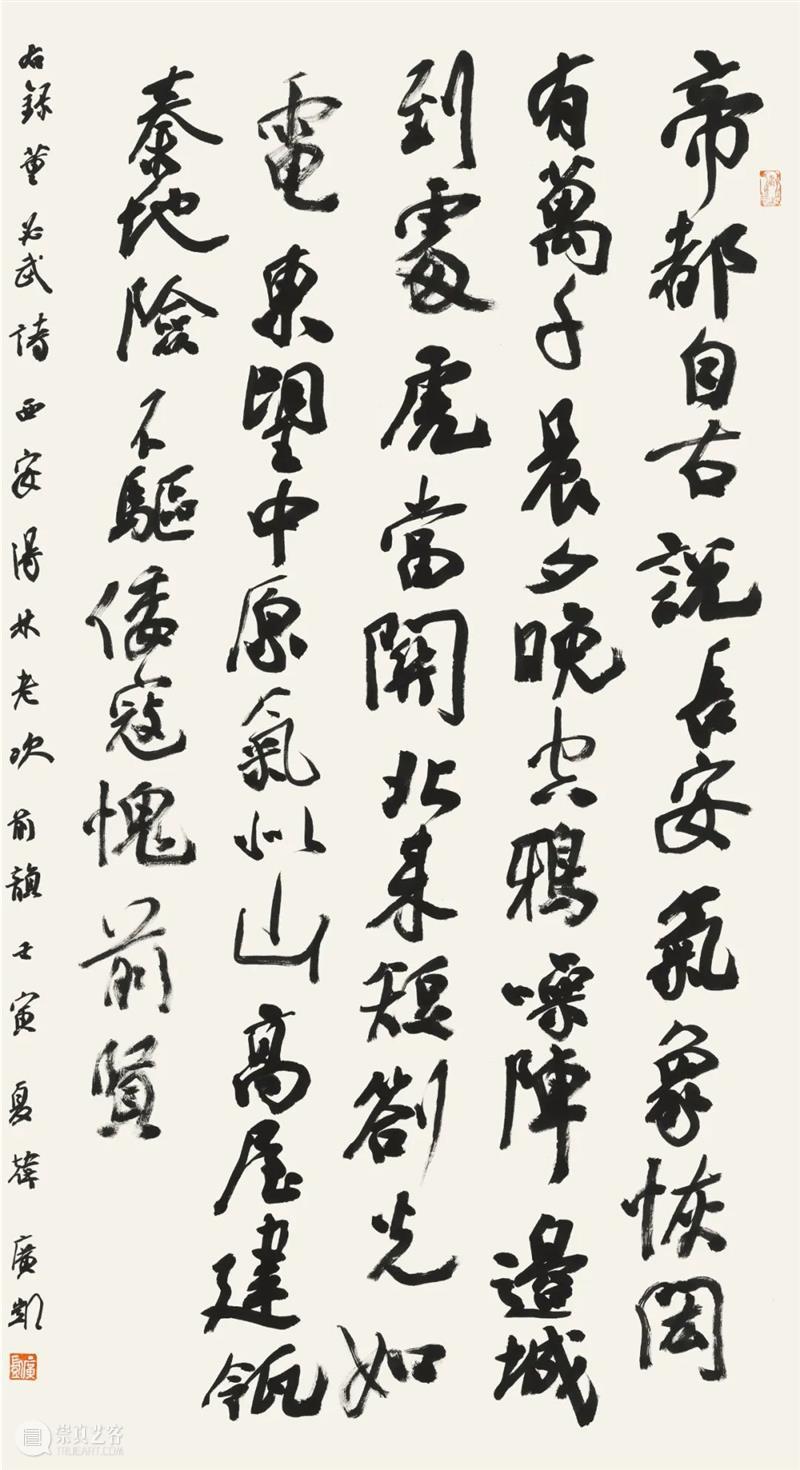 帝都自古說長安氣象恢閎
有萬千晨夕晚空鴉噪陣邊城
到處虎當關北來短劍光如
電東望中原氣似山高屋建瓴
秦地險不驅倭寇愧前賢
右錄董必武詩西安得林老次前韻壬寅夏韓廣凱
崇真艺客
TRUEART.COM